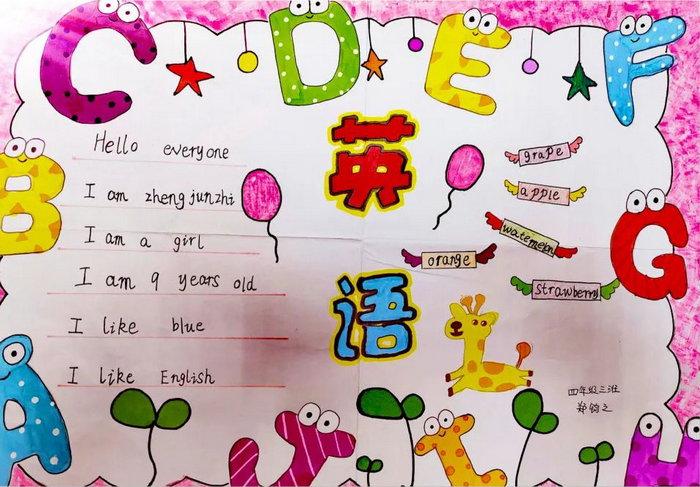 C D E F
B
G
A
J I H
英
语
Hello everyone
I am zheng junzhi
I am a girl
I am 9 years old
I like blue
I like English
grape
apple
watemeln
orange
strawberry
四年级三班
郑钧之